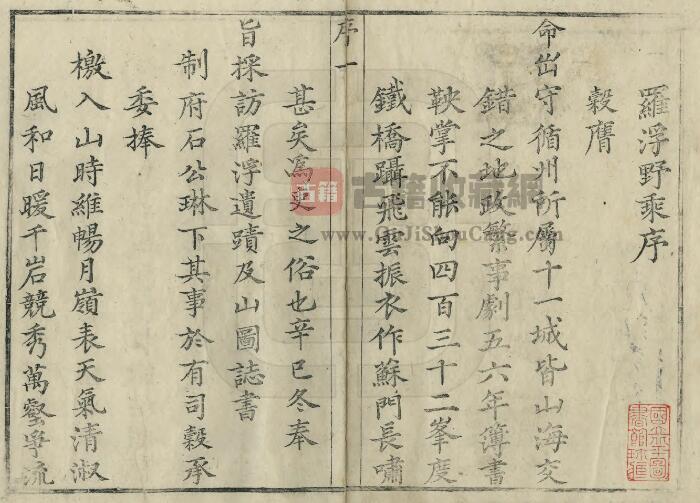 羅浮野乘序
穀膺
命出守循州所屬十一城皆山海交
錯之地政繁事劇五六年簿書
鞅掌不能向四百三十二峯度
鐵橋躡飛雲振衣作蘇門長嘯
序一
甚矣為吏之俗也辛巳冬奉
旨採訪羅浮遺蹟及山圖誌書
制府石公琳下其事於有司穀承
委捧
檄入山時維暢月嶺表天氣清淑
風和日暖千岩競秀萬壑爭流
古籍 古籍收藏網
www.GuJiShouCang.com